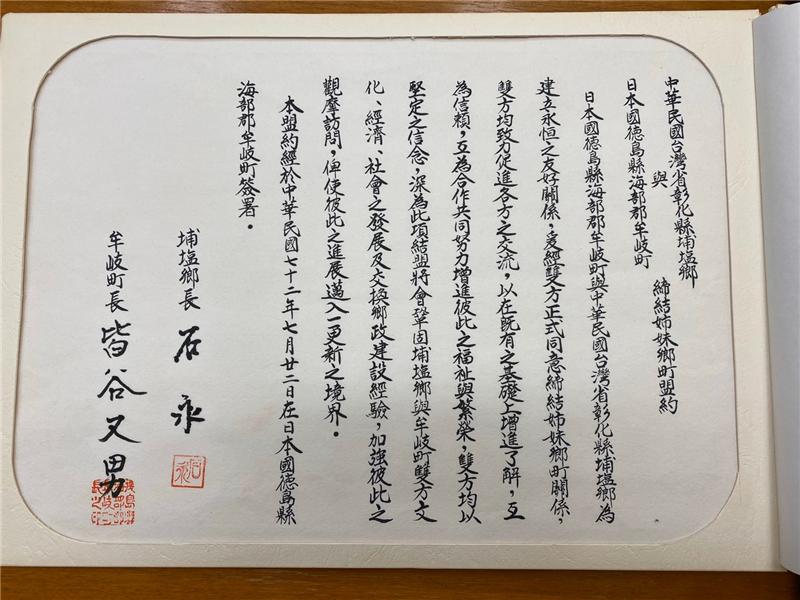 中華民國台灣省彰化縣埔塩鄉
與
日本國德島縣海部郡牟岐町
締結姉妹鄉町盟約
日本國德島縣海部郡牟岐町與中華民國台灣省彰化縣埔塩鄉為
建立永恒之友好關係，爰經雙方正式同意締結姉妹鄉町關係，
雙方均致力促進各方之交流，以在既有之基礎上增進了解，互
為信賴，互為合作共同努力增進彼此之福祉與繁榮，雙方均以
堅定之信念，深為此項結盟將會鞏固埔塩鄉與牟岐町雙方文
化、經濟、社會之發展及交換鄉政建設經驗，加強彼此之
觀摩訪問，俾使彼此之進展邁入一更新之境界。
本盟約經於中華民國七十二年七月廿二日在日本國德島縣
海部郡牟岐町簽署。
埔塩鄉長 石永
牟岐町長 皆谷又男